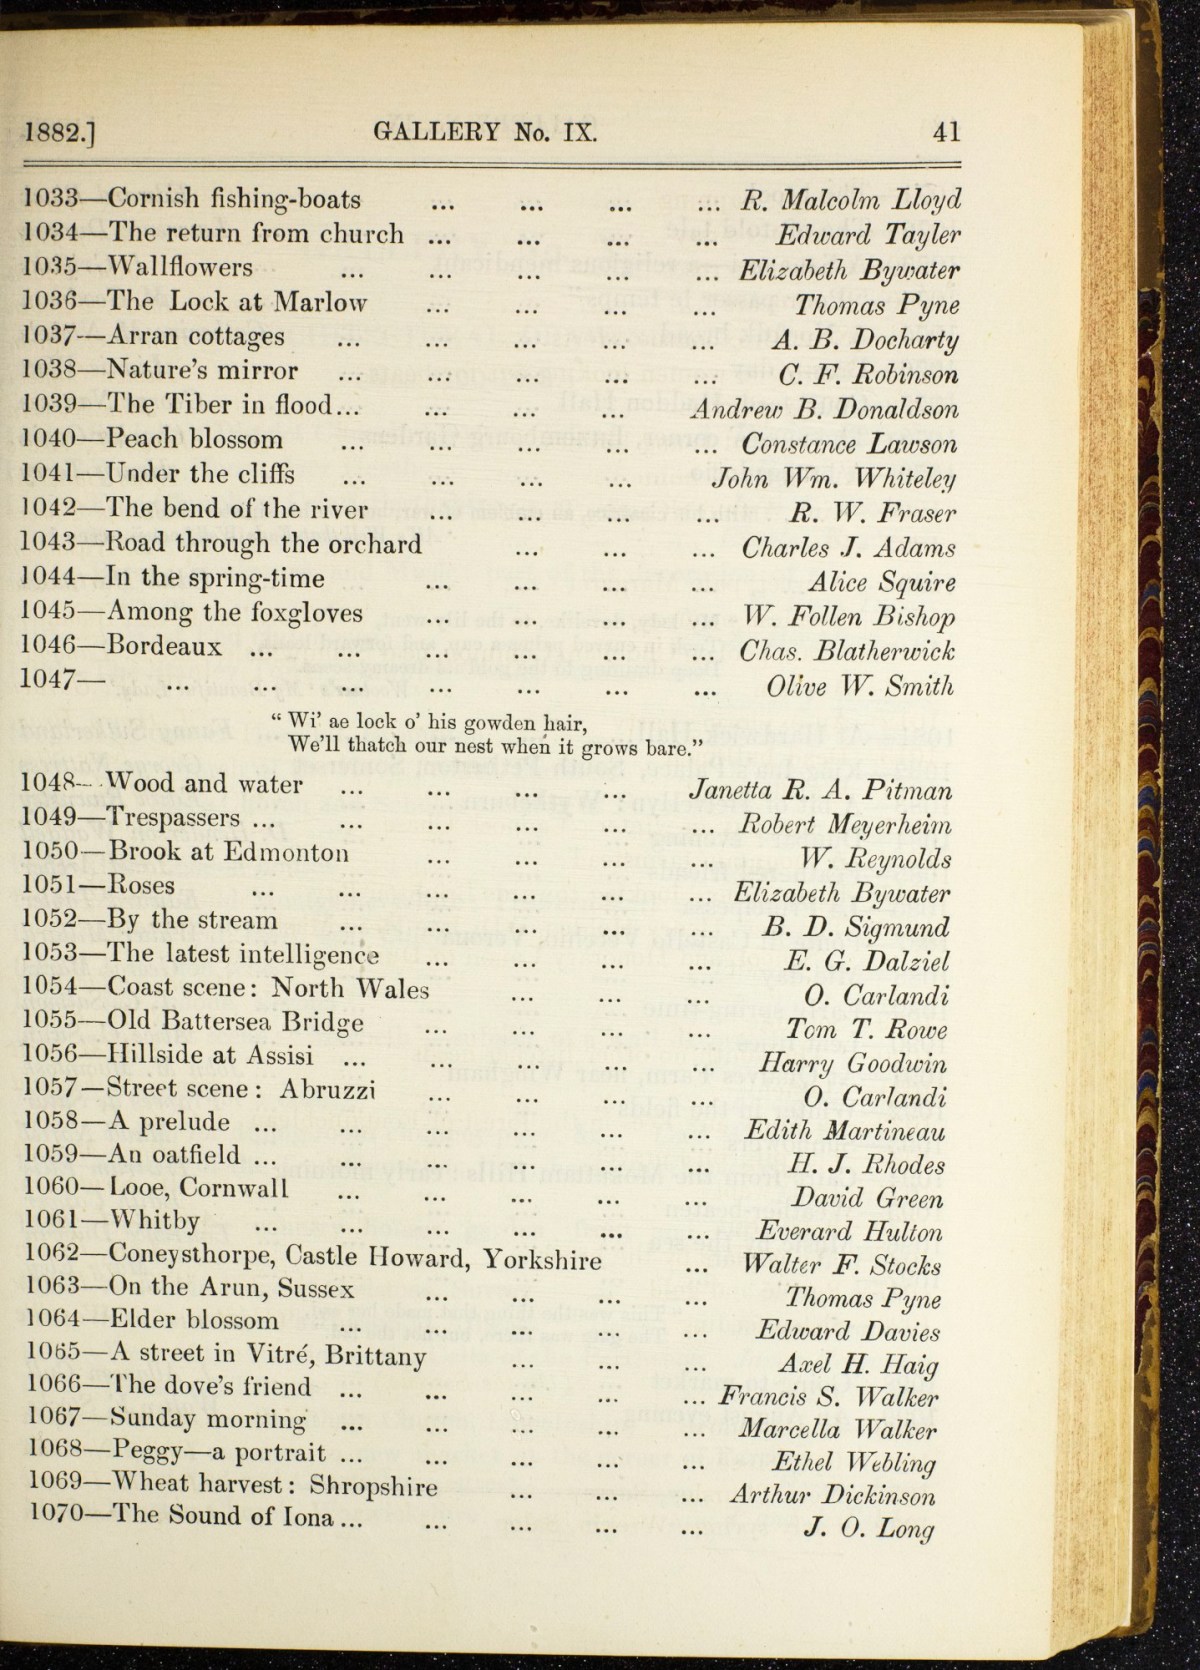 1882.] GALLERY No. IX. 41
1033—Cornish fishing-boats ... ... ... ... R. Malcolm Lloyd
1034—The return from church ... ... ... ... Edward Tayler
1035—Wallflowers ... ... ... ... ... Elizabeth Bywater
1036—The Lock at Marlow ... ... ... ... Thomas Pyne
1037—Arran cottages ... ... ... ... ... A. B. Docharty
1038—Nature's mirror ... ... ... ... ... C. F. Robinson
1039—The Tiber in flood... ... ... ... Andrew B. Donaldson
1040—Peach blossom ... ... ... ... ... Constance Lawson
1041—Under the cliffs ... ... ... ... John Wm. Whiteley
1042—The bend of the river ... ... ... ... R. W. Fraser
1043—Road through the orchard ... ... ... Charles J. Adams
1044—In the spring-time ... ... ... ... Alice Squire
1045—Among the foxgloves ... ... ... ... W. Follen Bishop
1046—Bordeaux ... ... ... ... ... ... Chas. Blatherwick
1047— ... ... ... ... ... ... ... Olive W. Smith
“ Wi' ae lock o' his gowden hair,
We'll thatch our nest when it grows bare.”
1048—Wood and water ... ... ... ... Janetta R. A. Pitman
1049—Trespassers ... ... ... ... ... ... Robert Meyerheim
1050—Brook at Edmonton ... ... ... ... W. Reynolds
1051—Roses ... ... ... ... ... ... Elizabeth Bywater
1052—By the stream ... ... ... ... ... B. D. Sigmund
1053—The latest intelligence ... ... ... ... E. G. Dalziel
1054—Coast scene: North Wales ... ... ... O. Carlandi
1055—Old Battersea Bridge ... ... ... ... Tom T. Rowe
1056—Hillside at Assisi ... ... ... ... ... Harry Goodwin
1057—Street scene: Abruzzi ... ... ... ... O. Carlandi
1058—A prelude ... ... ... ... ... ... Edith Martineau
1059—An oatfield ... ... ... ... ... ... H. J. Rhodes
1060—Looe, Cornwall ... ... ... ... ... David Green
1061—Whitby ... ... ... ... ... ... Everard Hulton
1062—Coneysthorpe, Castle Howard, Yorkshire ... Walter F. Stocks
1063—On the Arun, Sussex ... ... ... ... Thomas Pyne
1064—Elder blossom ... ... ... ... ... Edward Davies
1065—A street in Vitré, Brittany ... ... ... Axel H. Haig
1066—The dove's friend ... ... ... ... ... Francis S. Walker
1067—Sunday morning ... ... ... ... ... Marcella Walker
1068—Peggy—a portrait ... ... ... ... ... Ethel Webling
1069—Wheat harvest: Shropshire ... ... ... Arthur Dickinson
1070—The Sound of Iona ... ... ... ... ... J. O. Long